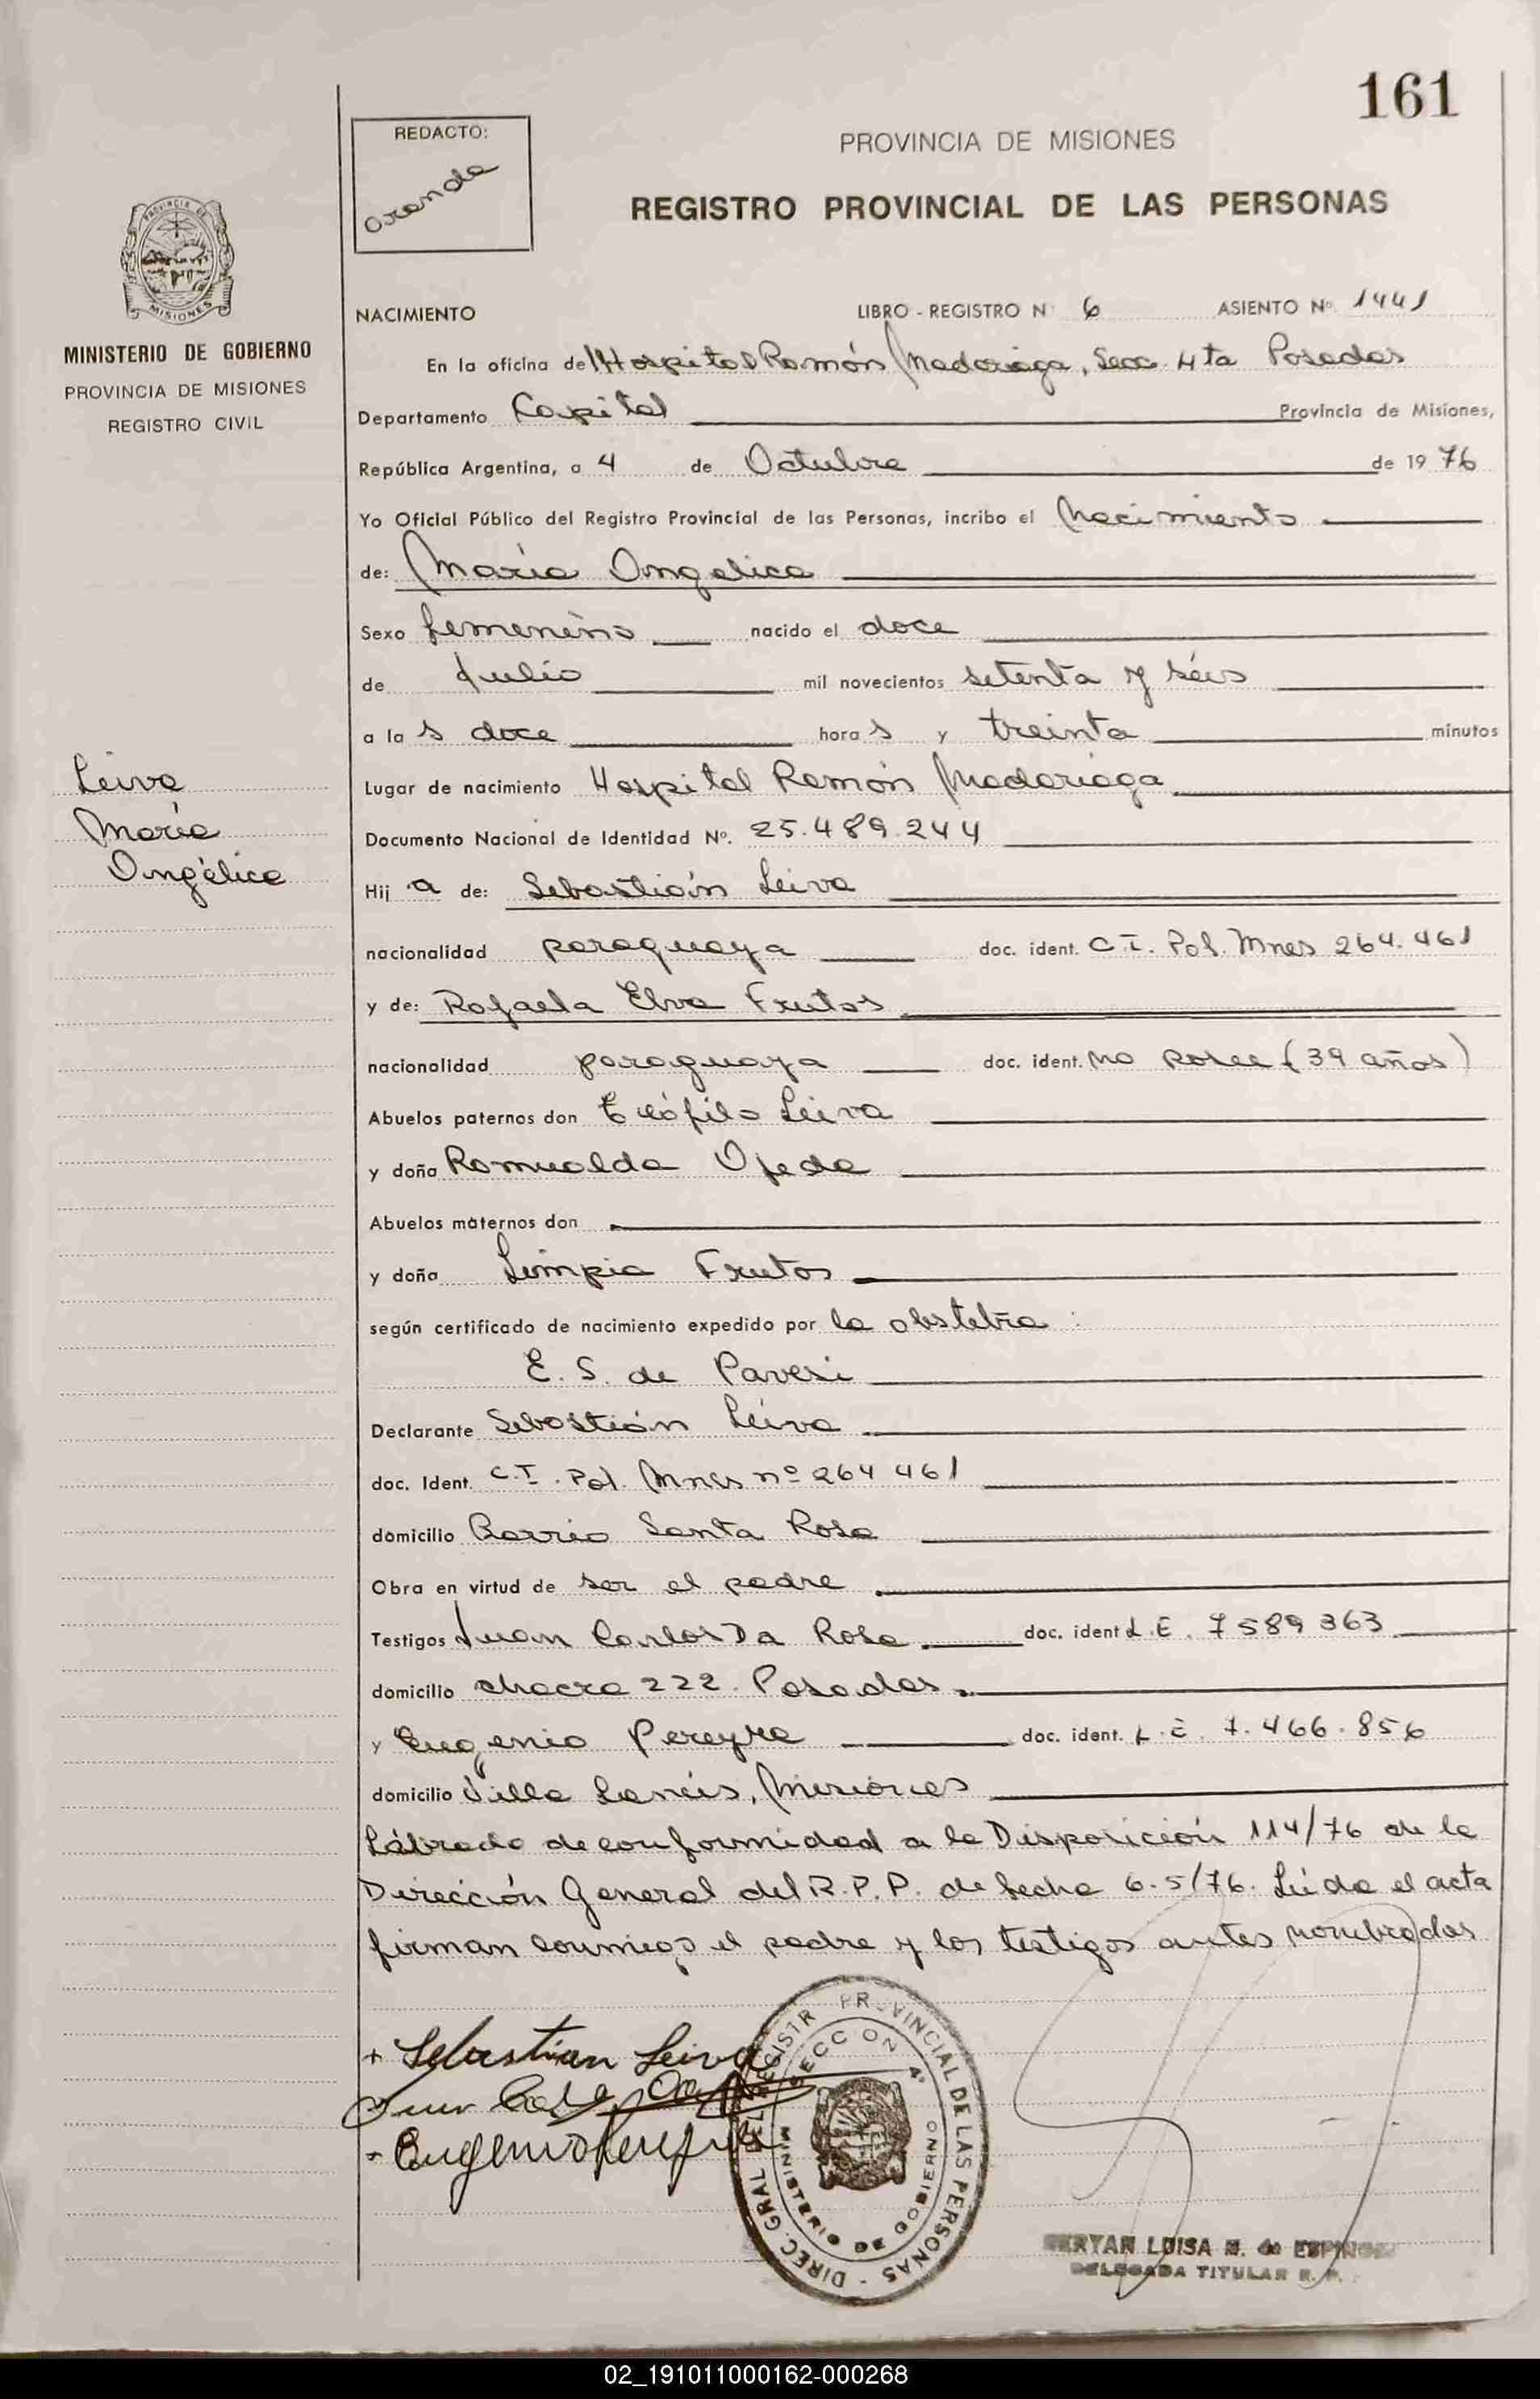 161
REDACTO:
Oranda
PROVINCIA DE MISIONES
REGISTRO PROVINCIAL DE LAS PERSONAS
PROVINCIA DE
MISIONES
MINISTERIO DE GOBIERNO
PROVINCIA DE MISIONES
REGISTRO CIVIL
NACIMIENTO LIBRO - REGISTRO Nº 6 ASIENTO Nº 1441
En la oficina de Hospital Ramón Madariaga, Secc. 4ta Posadas
Departamento Capital Provincia de Misiones,
República Argentina, a 4 de Octubre de 1976
Yo Oficial Público del Registro Provincial de las Personas, incribo el Nacimiento
de: María Angelica
Sexo femenino nacido el doce
de Julio mil novecientos setenta y séis
a las doce horas y treinta minutos
Leiva
María
Angélica
Lugar de nacimiento Hospital Ramón Madariaga
Documento Nacional de Identidad Nº. 25.489.244
Hija de: Sebastián Leiva
nacionalidad paraguaya doc. ident. C.I. Pol. Mnes 264.461
y de: Rafaela Elva Frutos
nacionalidad paraguaya doc. ident. no posee (39 años)
Abuelos paternos don Teófilo Leiva
y doña Romualda Ojeda
Abuelos maternos don
y doña Limpia Frutos
según certificado de nacimiento expedido por la obstetra:
E. S. de Pavesi
Declarante Sebastián Leiva
doc. Ident. C.I. Pol. Mnes nº 264 461
domicilio Barrio Santa Rosa
Obra en virtud de ser el padre
Testigos Juan Carlos Da Rosa doc. ident L.E. 7589363
domicilio chacra 222. Posadas
y Eugenio Pereyra doc. ident. L.E. 7.466.856
domicilio Villa Lanús, Misiones
Labrada de conformidad a la Disposición 114/76 de la
Dirección General del R.P.P. de fecha 6.5/76. Leída el acta
firman conmigo el padre y los testigos antes nombrados
+ Sebastian Leiva
Eugenio Pereyra
DIREC. GRAL DEL REGISTR PROVINCIAL DE LAS PERSONAS -
SECCION 4ª
MINISTERIO DE GOBIERNO
LUISA M. de
DELEGADA TITULAR R. P.
02_191011000162-000268